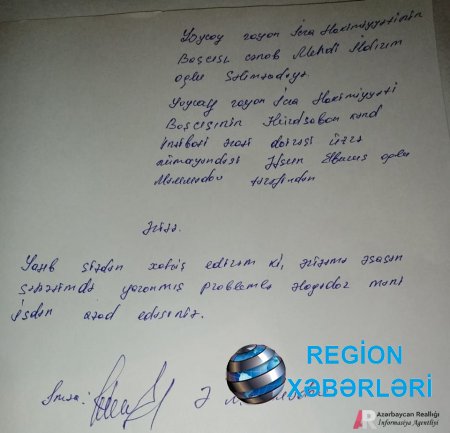 Göyçay rayon İcra Hakimiyyətinin
Başçısı cənab Mehdi İldırım
oğlu Səlimzadəyə.
Göyçay rayon İcra Hakimiyyəti
Başçısının kənd
inzibati ərazi dairəsi üzrə
nümayəndəsi oğlu
Məmmədov tərəfindən
Ərizə.
Yazıb sizdən xahiş edirəm ki, ərizəmə əsasən
səhhətimdə yaranmış problemlə əlaqədar məni
işdən azad edəsiniz.
İmza: Ə
REGİON
XƏBƏRLƏRİ
AR Azərbaycan Reallığı
İnformasiya Agentliyi